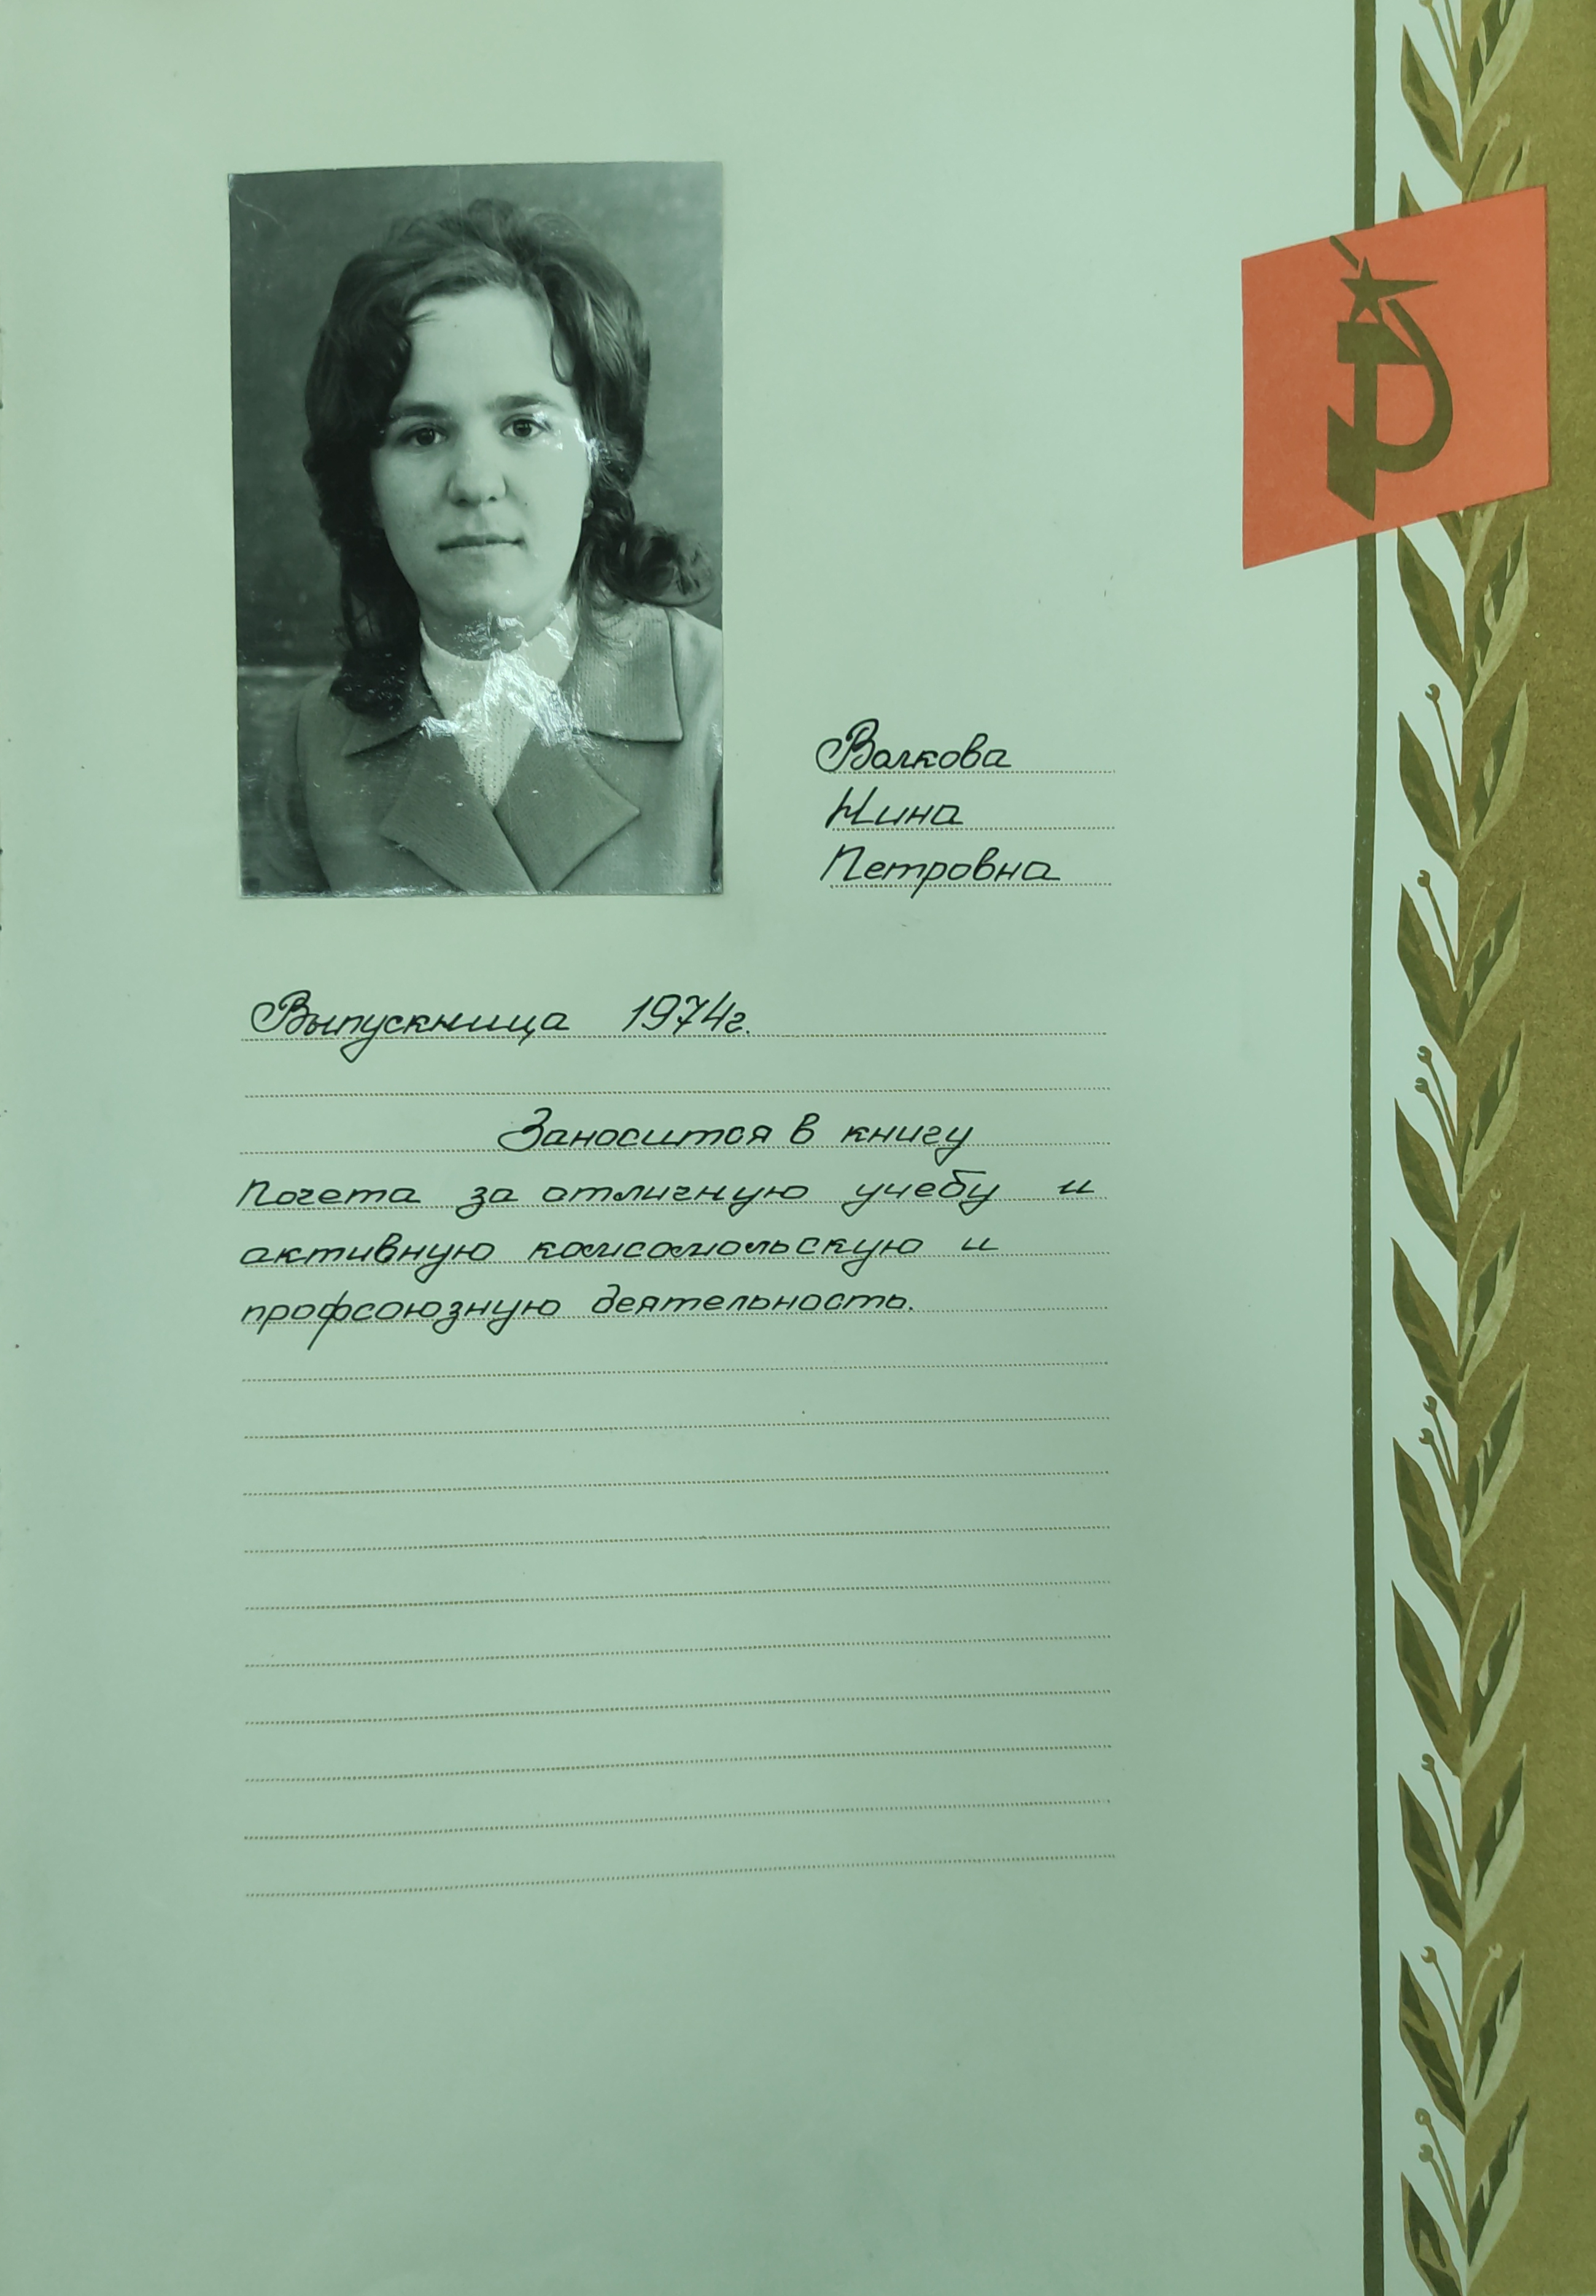 Волкова
Нина
Петровна
Выпускница 1974г.
Заносится в книгу
Почета за отличную учебу и
активную комсомольскую и
профсоюзную деятельность.